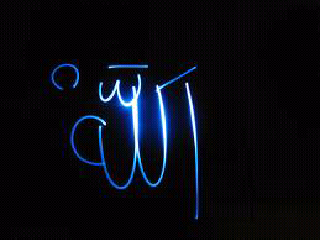 اللَّهْ